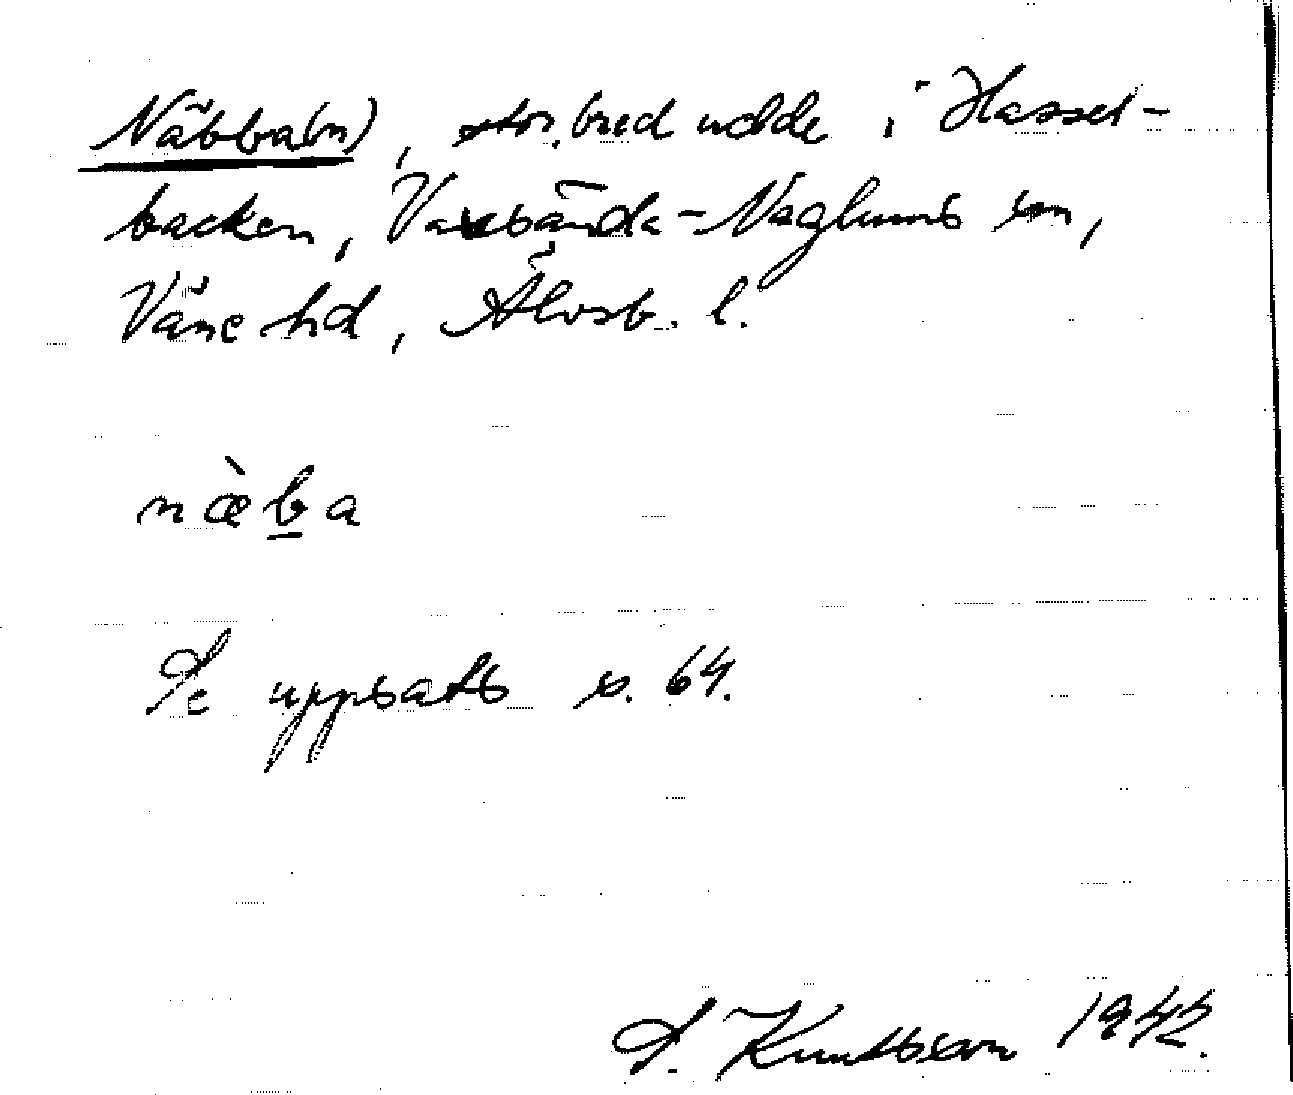 Näbba(n), stor, bred udde i Hassel-
backen, Vassända-Naglums sn,
Väne hd, Älvsb. l.
næ̀b̲a
Se uppsats s. 64.
S. Knutsson 1942.